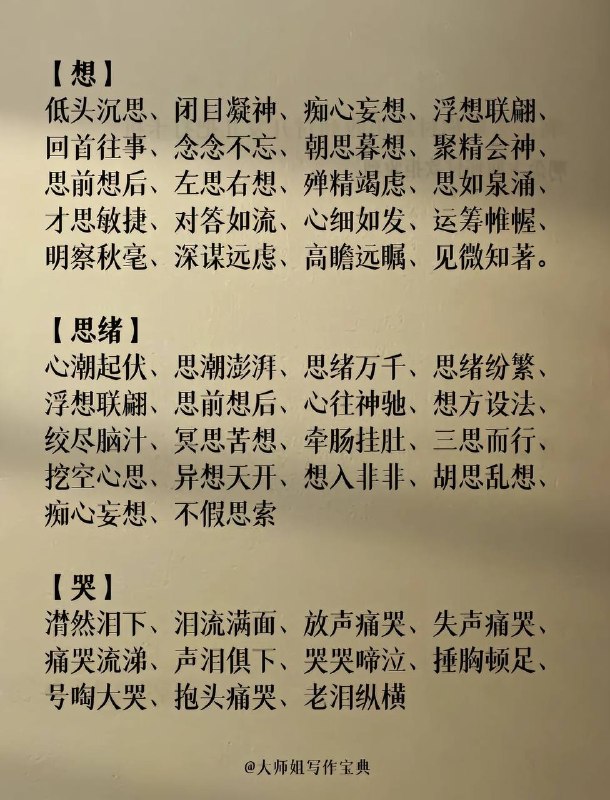 【想】
低头沉思、闭目凝神、痴心妄想、浮想联翩、
回首往事、念念不忘、朝思暮想、聚精会神、
思前想后、左思右想、殚精竭虑、思如泉涌、
才思敏捷、对答如流、心细如发、运筹帷幄、
明察秋毫、深谋远虑、高瞻远瞩、见微知著。
【思绪】
心潮起伏、思潮澎湃、思绪万千、思绪纷繁、
浮想联翩、思前想后、心往神驰、想方设法、
绞尽脑汁、冥思苦想、牵肠挂肚、三思而行、
挖空心思、异想天开、想入非非、胡思乱想、
痴心妄想、不假思索
【哭】
潸然泪下、泪流满面、放声痛哭、失声痛哭、
痛哭流涕、声泪俱下、哭哭啼泣、捶胸顿足、
号啕大哭、抱头痛哭、老泪纵横
@大师姐写作宝典